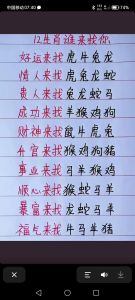 中国移动 07:40
74%
12生肖谁来找你
好运来找虎牛兔龙
情人来找兔龙蛇
贵人来找兔蛇马
成功来找羊猴鸡狗
财神来找鼠牛虎兔
升官来找猴鸡狗猪
事业来找马羊猴鸡
顺心来找猴蛇马羊
暴富来找龙蛇马羊
福气来找牛马羊猪